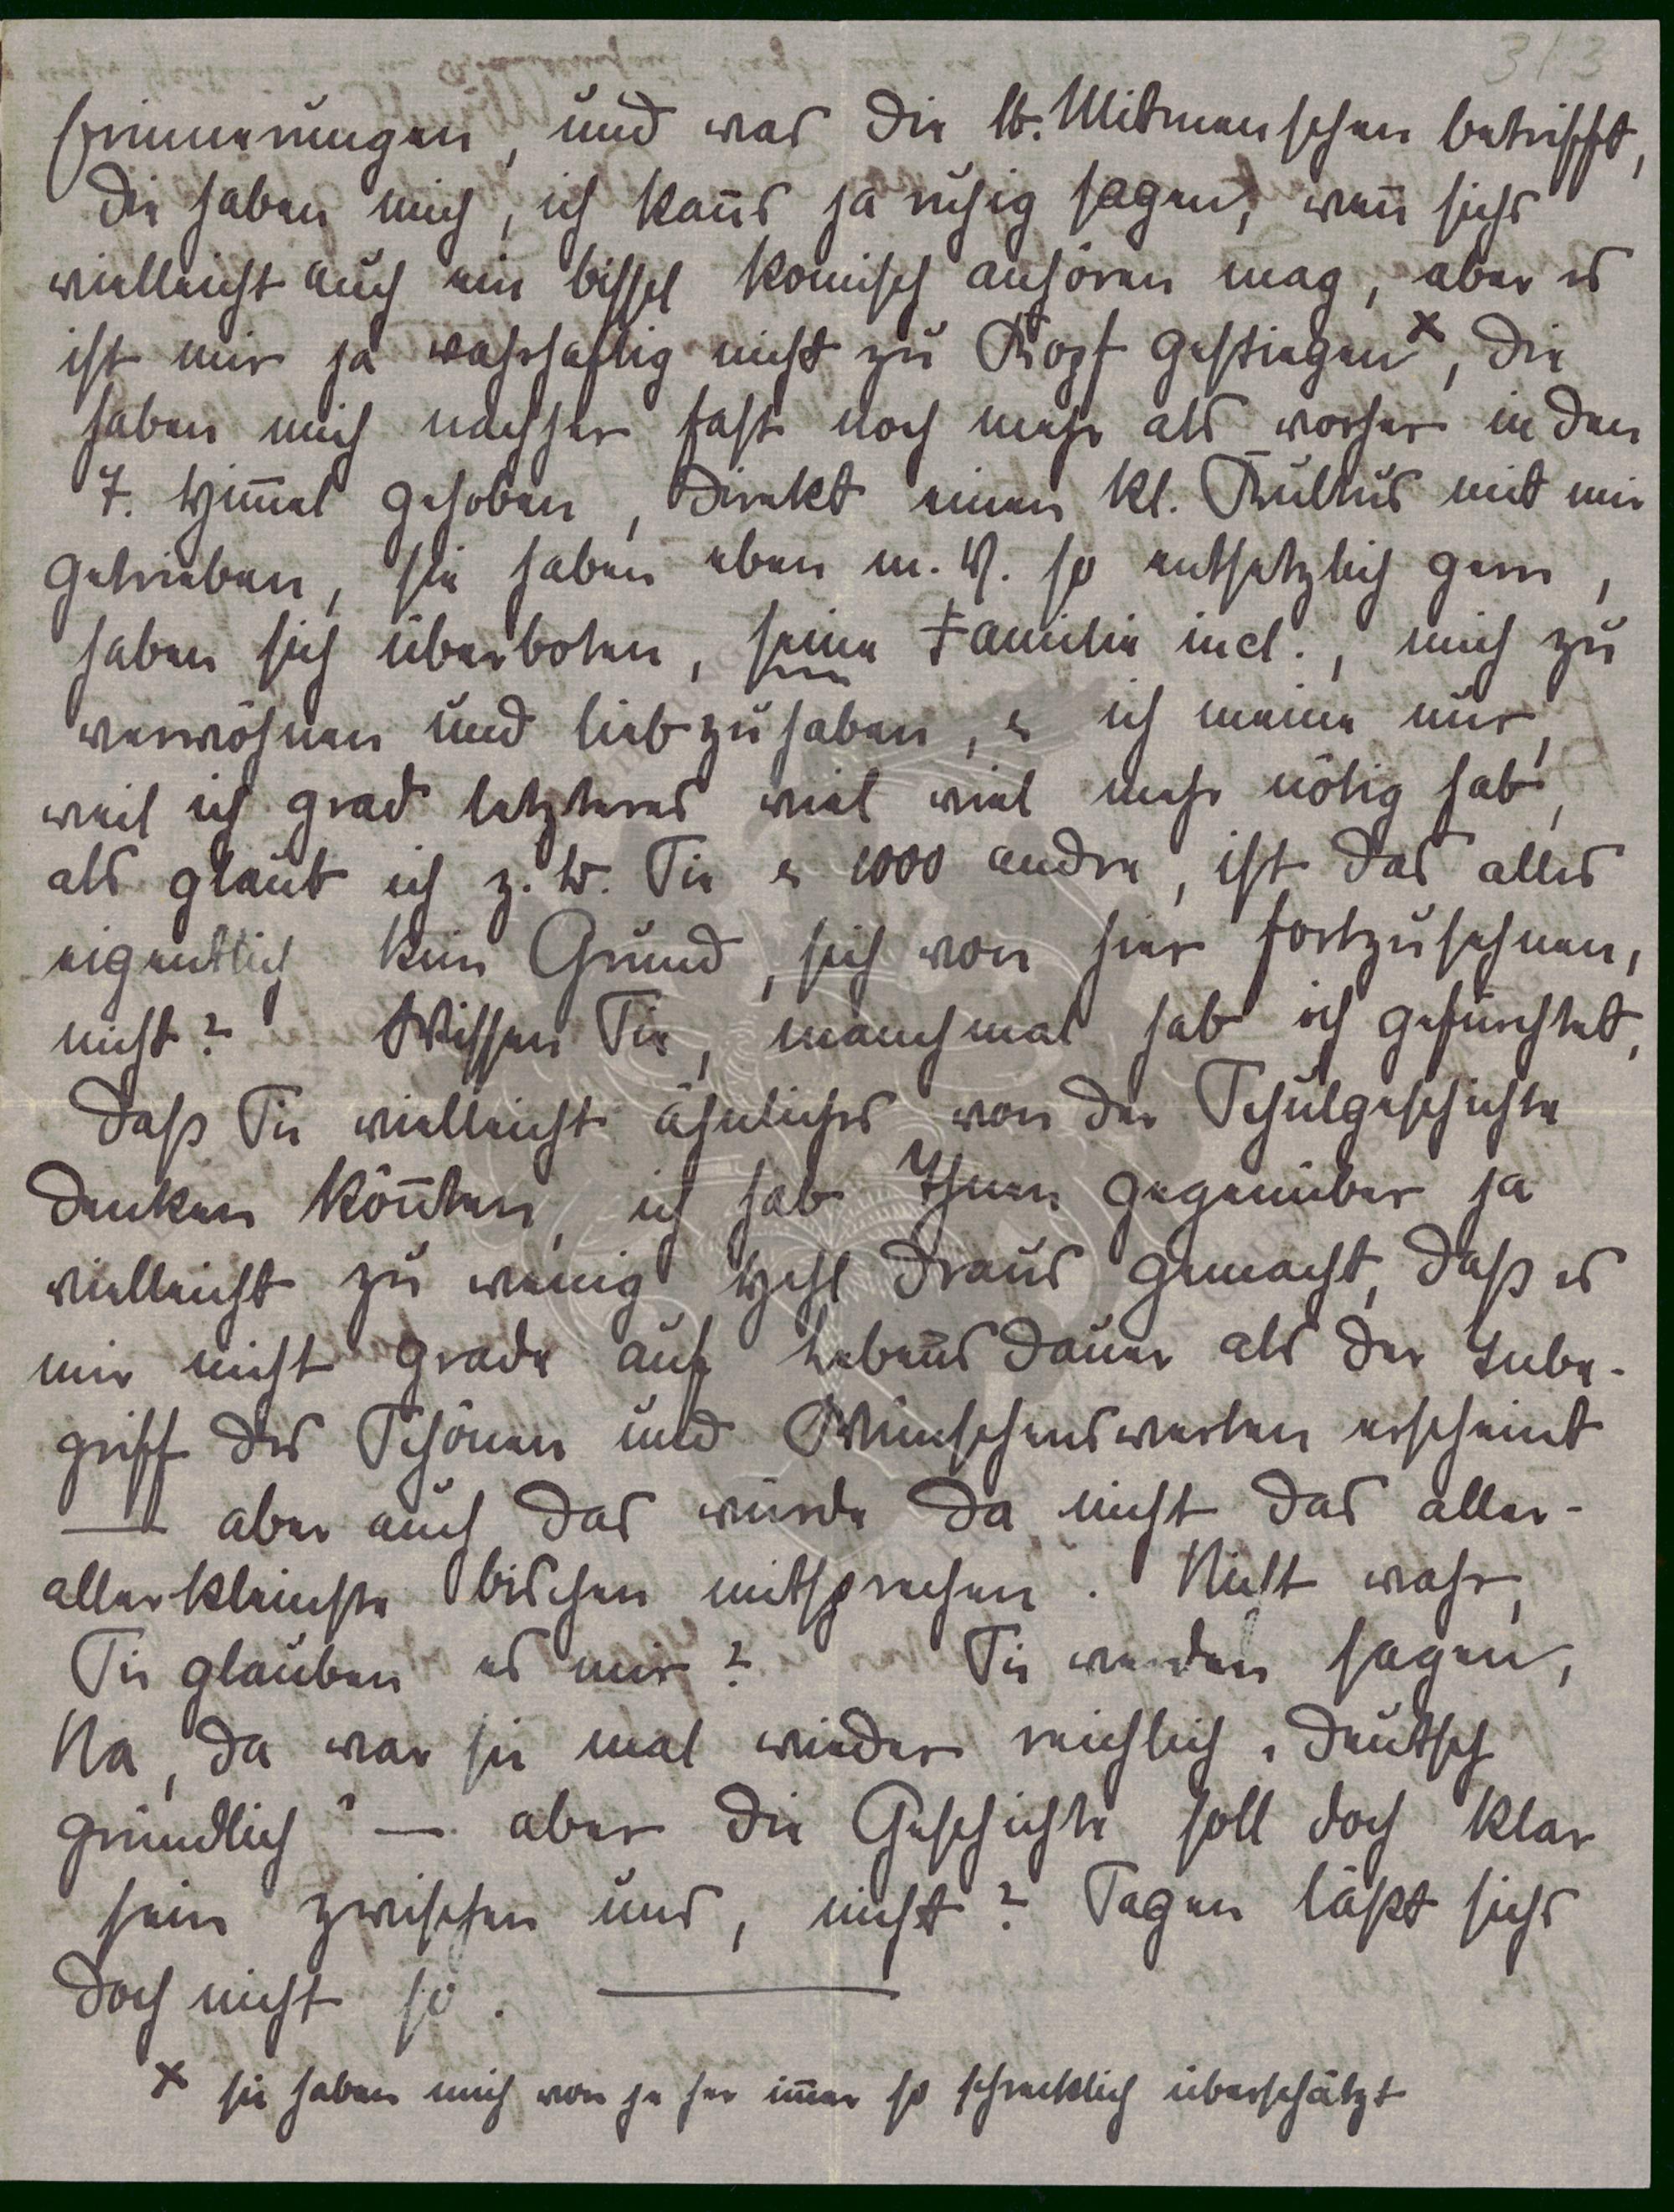 3/3
Erinnerungen, und was die lb. Mitmenschen betrifft,
die haben mich, ich kan̄s ja ruhig sagen, wen̄ sichs
vielleicht auch ein bissel komisch anhören mag, aber es
ist mir ja wahrhaftig nicht zu Kopf gestiegen ×, die
haben mich nachher fast noch mehr als vorher in den
7. Him̄el gehoben, direkt einen kl. Kultus mit mir
getrieben, sie haben eben m. V. so entsetzlich gern,
haben sich überboten, seine Familie incl., mich zu
verwöhnen und liebzuhaben, & ich meine nur,
weil ich grad letzteres viel viel mehr nötig hab,
als glaub ich z. B. Sie & 1000 andre, ist das alles
eigentlich kein Grund, sich von hier fortzusehnen,
nicht? Wissen Sie, manchmal hab ich gefürchtet,
daß Sie vielleicht ähnliches von der Schulgeschichte
denken kön̄ten, ich hab Ihnen gegenüber ja
vielleicht zu wenig Hehl draus gemacht, daß es
mir nicht grade auf Lebensdauer als der Inbe-
griff des Schönen und Wünschenswerten erscheint
— aber auch das würde da nicht das aller-
allerkleinste bischen mitsprechen. Nicht wahr,
Sie glauben es mir? Sie werden sagen,
Na, da war sie mal wieder reichlich „deutsch
gründlich“ — aber die Geschichte soll doch klar
sein zwischen uns, nicht? Sagen läßt sichs
doch nicht so. —
× sie haben mich von je her im̄er so schrecklich überschätzt